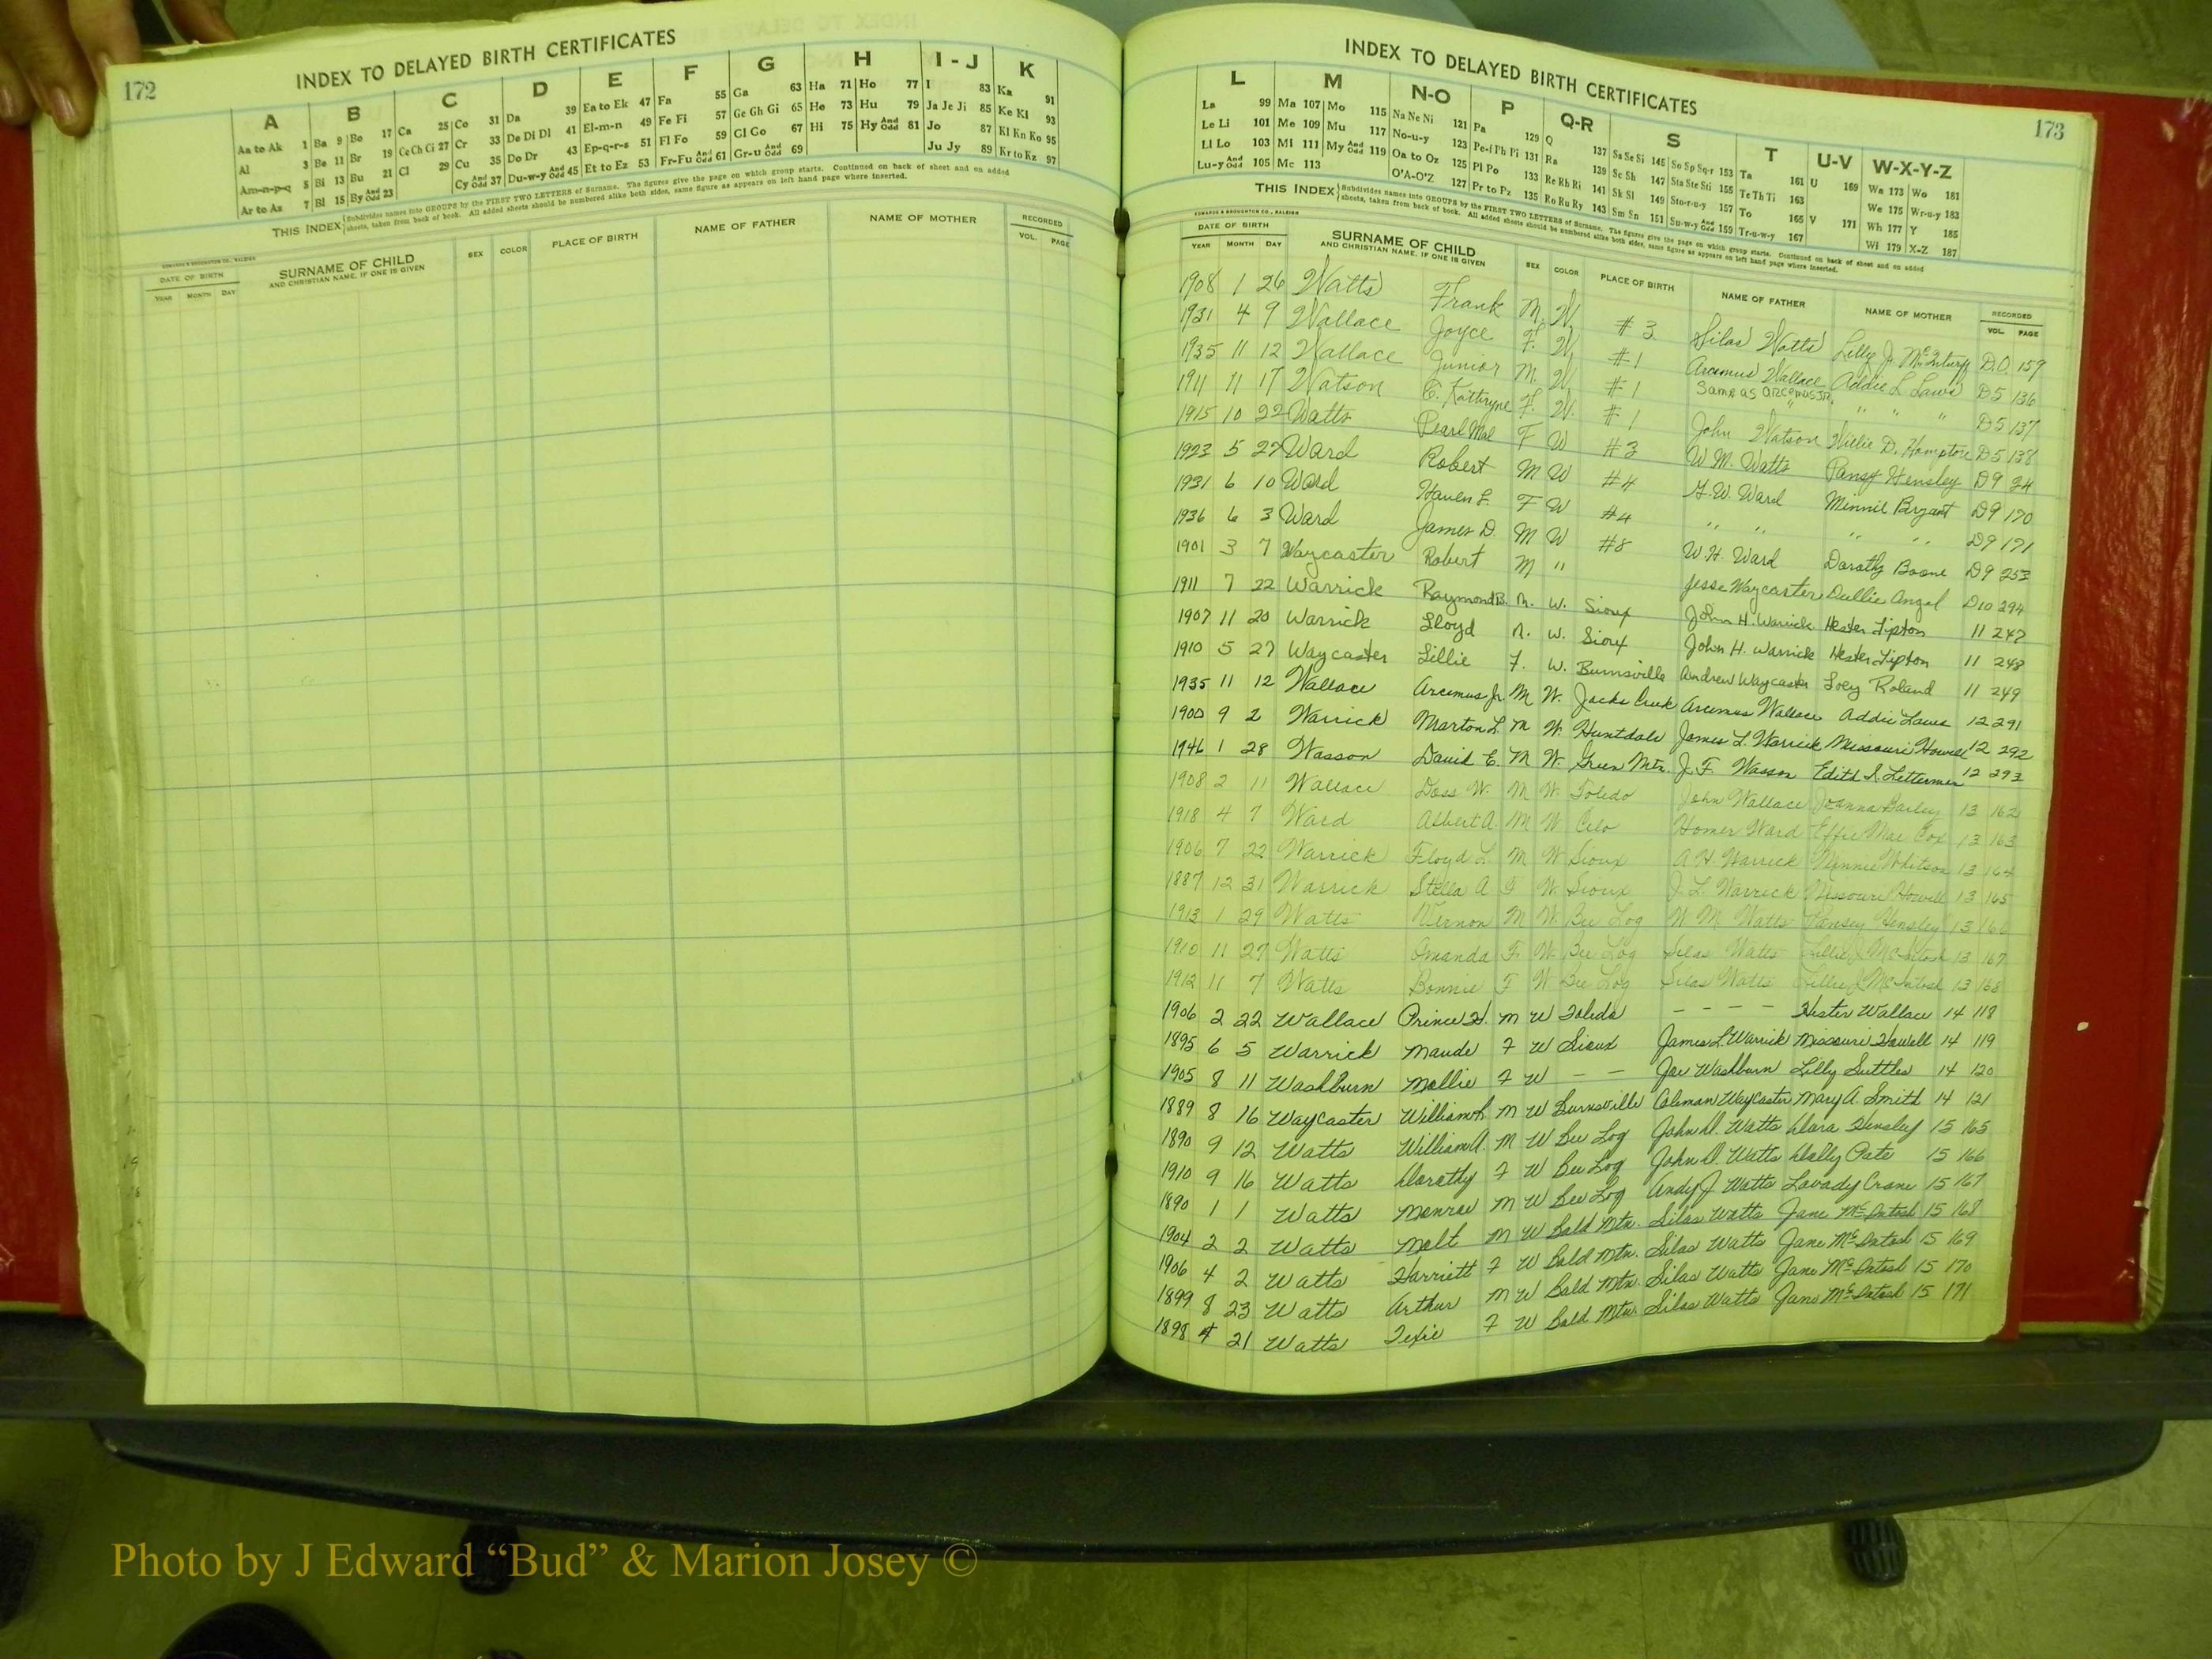 172
INDEX TO DELAYED BIRTH CERTIFICATES
A B C D E F G H I - J K
Aa to Ak 1 Ba 9 Bo 17 Ca 25 Co 31 Da 39 Ea to Ek 47 Fa 55 Ga 63 Ha 71 Ho 77 I 83 Ka 91
Al 3 Be 11 Br 19 Ce Ch Ci 27 Cr 33 De Di Dl 41 El-m-n 49 Fe Fi 57 Ge Gh Gi 65 He 73 Hu 79 Ja Je Ji 85 Ke Kl 93
Am-n-p-q 5 Bi 13 Bu 21 Cl 29 Cu 35 Do Dr 43 Ep-q-r-s 51 Fl Fo 59 Gl Go 67 Hi 75 Hy And Odd 81 Jo 87 Kl Kn Ko 95
Ar to Az 7 Bl 15 By And Odd 23 Cy And Odd 37 Du-w-y And Odd 45 Et to Ez 53 Fr-Fu And Odd 61 Gr-u And Odd 69 Ju Jy 89 Kr to Kz 97
THIS INDEX Subdivides names into GROUPS by the FIRST TWO LETTERS of Surname. The figures give the page on which group starts. Continued on back of sheet and on added
sheets, taken from back of book. All added sheets should be numbered alike both sides, same figure as appears on left hand page where inserted.
EDWARDS & BROUGHTON CO., RALEIGH
DATE OF BIRTH SURNAME OF CHILD AND CHRISTIAN NAME, IF ONE IS GIVEN SEX COLOR PLACE OF BIRTH NAME OF FATHER NAME OF MOTHER RECORDED
YEAR MONTH DAY VOL. PAGE
173
INDEX TO DELAYED BIRTH CERTIFICATES
L M N-O P Q-R S T U-V W-X-Y-Z
La 99 Ma 107 Mo 115 Na Ne Ni 121 Pa 129 Q 137 Sa Se Si 145 So Sp Sq-r 153 Ta 161 U 169 Wa 173 Wo 181
Le Li 101 Me 109 Mu 117 No-u-y 123 Pe-f Ph Pi 131 Ra 139 Sc Sh 147 Sta Ste Sti 155 Te Th Ti 163 We 175 Wr-u-y 183
Ll Lo 103 Mi 111 My And Odd 119 Oa to Oz 125 Pl Po 133 Re Rh Ri 141 Sk Sl 149 Sto-r-u-y 157 To 165 V 171 Wh 177 Y 185
Lu-y And Odd 105 Mc 113 O'A-O'Z 127 Pr to Pz 135 Ro Ru Ry 143 Sm Sn 151 Su-w-y And Odd 159 Tr-u-w-y 167 Wi 179 X-Z 187
THIS INDEX Subdivides names into GROUPS by the FIRST TWO LETTERS of Surname. The figures give the page on which group starts. Continued on back of sheet and on added
sheets, taken from back of book. All added sheets should be numbered alike both sides, same figure as appears on left hand page where inserted.
EDWARDS & BROUGHTON CO., RALEIGH
DATE OF BIRTH SURNAME OF CHILD AND CHRISTIAN NAME, IF ONE IS GIVEN SEX COLOR PLACE OF BIRTH NAME OF FATHER NAME OF MOTHER RECORDED
YEAR MONTH DAY VOL. PAGE
1908 1 26 Watts Frank M. W. #3 Silas Watts Lilly J. D.O. 159
1931 4 9 Wallace Joyce F. W. #1 Arcemus Wallace Addie L Laws D5 136
1935 11 12 Wallace Junior M. W. #1 Same as Arcemus Jr. " " " D5 137
1911 11 17 Watson E. Kathryne F. W. #1 John Watson Willie D. Hampton D5 138
1915 10 22 Watts Pearl Mal F W #3 W M. Watts Pansy Hensley D9 24
1923 5 27 Ward Robert M W #4 G.W. Ward Minnie Bryant D9 170
1931 6 10 Ward Haven L. F W #4 " " " " D9 171
1936 6 3 Ward James D. M W #8 W.H. Ward Dorothy Boone D9 253
1901 3 7 Waycaster Robert M " Jesse Waycaster Dullie Angel D10 294
1911 7 22 Warrick Raymond B. M. W. Sioux John H. Warrick Hester Tipton 11 247
1907 11 20 Warrick Lloyd M. W. Sioux John H. Warrick Hester Tipton 11 248
1910 5 27 Waycaster Lillie F. W. Burnsville Andrew Waycaster Loey Roland 11 249
1935 11 12 Wallace Arcemus Jr. M W. Jacks Creek Arcemus Wallace Addie Laws 12 291
1900 9 2 Warrick Marton L. M W. Huntdale James L. Warrick Missouri Howell 12 292
1946 1 28 Wasson David E. M W. Green Mtn. J. F. Wasson Edith S. Letterman 12 293
1908 2 11 Wallace Doss W. M W. Toledo John Wallace Joanna Bailey 13 162
1918 4 7 Ward Albert A. M W Celo Homer Ward Effie Mae Cox 13 163
1906 7 22 Warrick Floyd L. M W Sioux A H Warrick Minnie Whitson 13 164
1887 12 31 Warrick Stella A F W. Sioux J. L. Warrick Missouri Howell 13 165
1913 1 29 Watts Vernon M W Bee Log W M. Watts Pansey Hensley 13 166
1910 11 27 Watts Amanda F W. Bee Log Silas Watts Lillie J McIntosh 13 167
1912 11 7 Watts Bonnie F W Bee Log Silas Watts Lillie J McIntosh 13 168
1906 2 22 Wallace Prince H. M W Toledo - - - - Hester Wallace 14 118
1895 6 5 Warrick Maude F W Sioux James L Warrick Missouri Howell 14 119
1905 8 11 Washburn Mollie F W - - Joe Washburn Lilly Suttles 14 120
1889 8 16 Waycaster William R. M W Burnsville Coleman Waycaster Mary A. Smith 14 121
1890 9 12 Watts William A. M W Bee Log John D. Watts Clara Hensley 15 165
1910 9 16 Watts Dorothy F W Bee Log John D. Watts Dolly Pate 15 166
1890 1 1 Watts Monroe M W Bee Log Andy J Watts Lavady Crane 15 167
1904 2 2 Watts Molt M W Bald Mtn. Silas Watts Jane McIntosh 15 168
1906 4 2 Watts Harriett F W Bald Mtn. Silas Watts Jane McIntosh 15 169
1899 8 23 Watts Arthur M W Bald Mtn. Silas Watts Jane McIntosh 15 170
1898 4 21 Watts Texie F W Bald Mtn. Silas Watts Jane McIntosh 15 171
Photo by J Edward “Bud” & Marion Josey ©